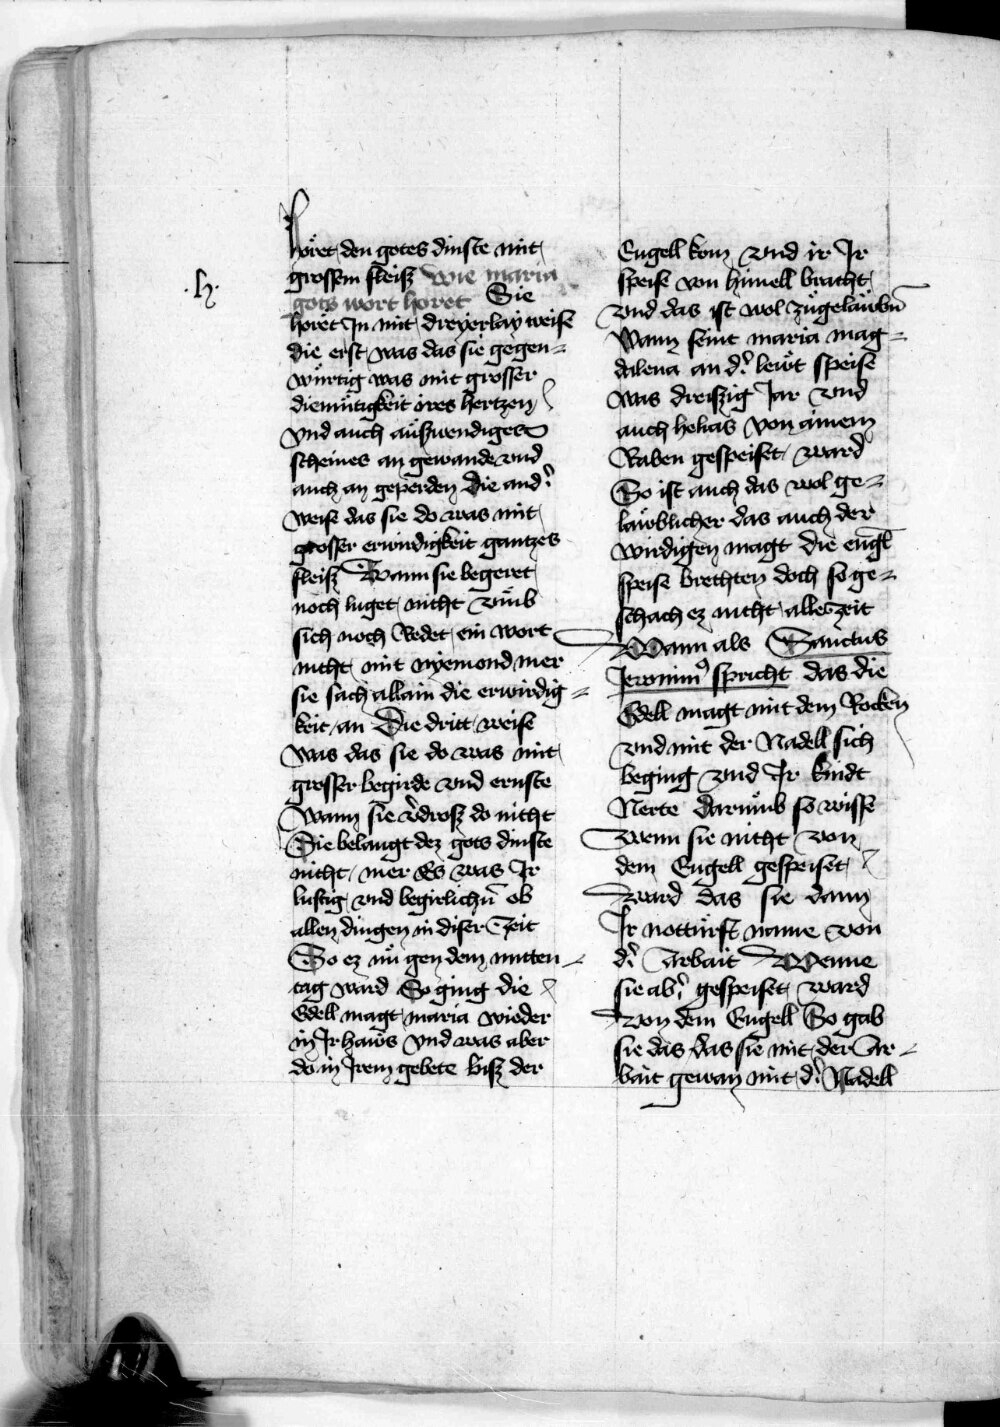 .h.
höret den gotes dinste mit
grossem fleisz wie maria
gots wort horet Sie
höret In mit dreyerlay weise
die erst was das sie gegen=
würtig was mit grosser
diemütigkeit ires hertzen
vnd auch auszwendiges
scheines an gewande vnd
auch an geperden die and̾
weise das sie do was mit
grosser erwirdigkeit gantzes
fleisz Wann sie begeret
noch luget nicht vmb
sich noch Redet ein wort
nicht mit nyemond mer
sie sach allain die erwirdig=
keit an Die dritt weise
Was das sie do was mit
grosser begirde vnd ernste
Wann sie v̾drosz do nicht
Sie belangt dez gots dinste
nicht mer Es was Ir
lustig vnd begirlichn̄ ob
allen dingen in diser Zeit
So ez nü gen dem mitten=
tag ward So ging die
Edell magt maria wieder
in Ir haws vnd was aber
do in Irem gebete bisz der
Engell kom vnd ir Ir
speise von himell bracht
vnd das ist wol zügelawbn̄
Wann seint maria mag=
dalena an d̾ lewt speise
was dreiszig Jar vnd
auch helias von ainem
Raben gespeiset ward
So ist auch das wol ge=
lawblicher das auch der
wirdigen magt die engl
speise brechten doch so ge=
schach ez nicht alleczeit
Wann als Sanctus
Jeronim⁹ spricht das die
Edell magt mit dem Rocken
vnd mit der Nadell sich
beging vnd Ir kindt
Nerte darumb so wisse
Wenn sie nicht von
dem Engell gespeiset
ward das sie dann
Ir nottürft name von
d̾ Arbait Wenne
sie ab̾ gespeiset ward
von dem Engell So gab
sie das das sie mit der Ar=
bait gewan mit d̾ Nadell